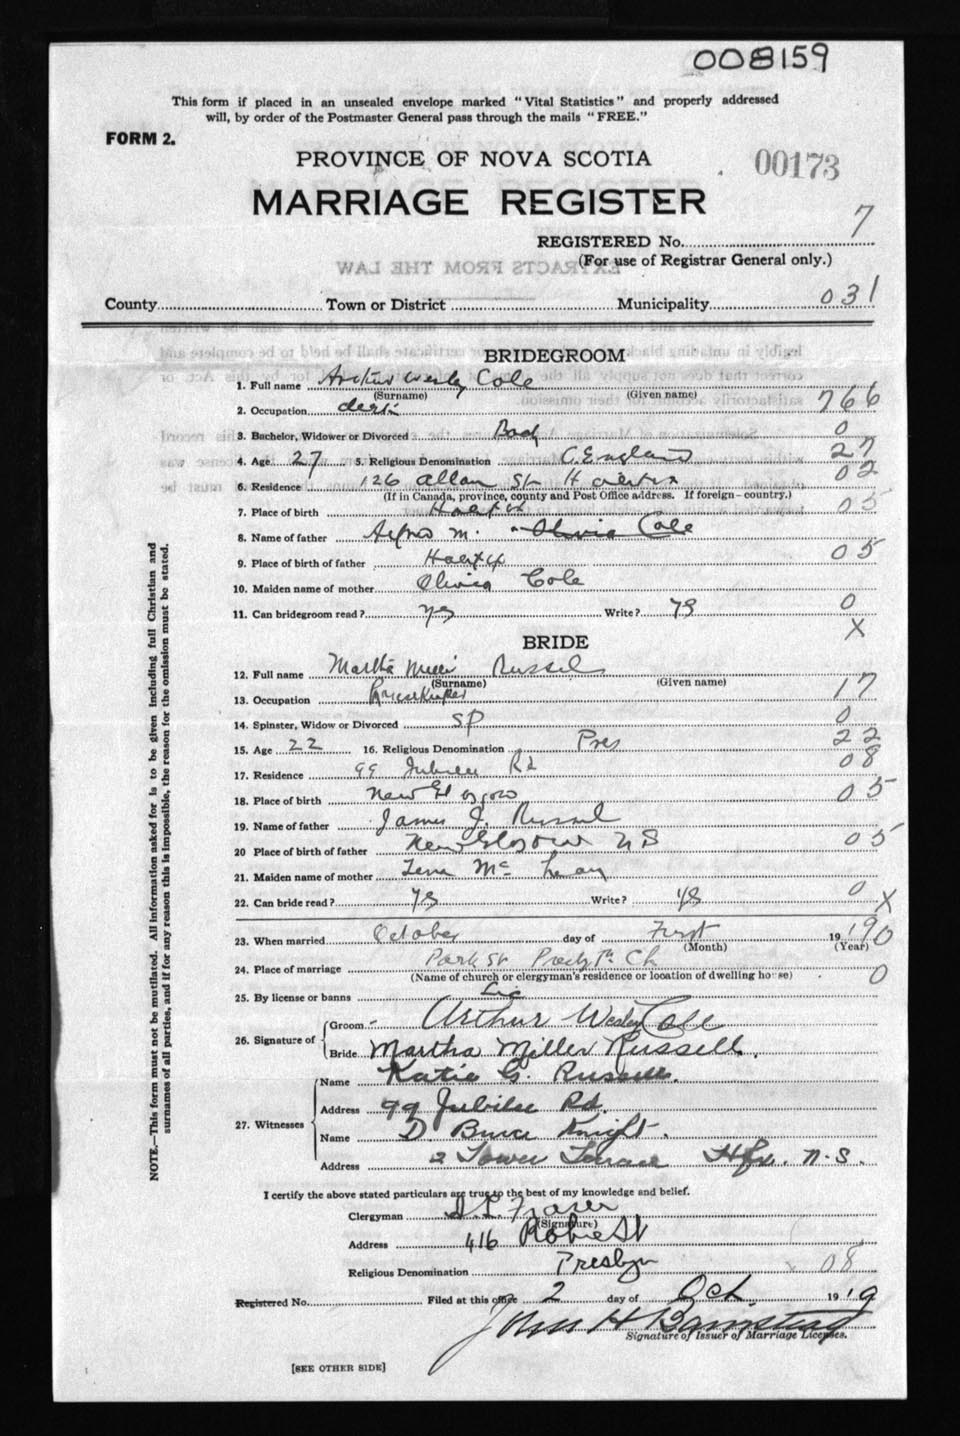 008159
This form if placed in an unsealed envelope marked "Vital Statistics" and properly addressed
will, by order of the Postmaster General pass through the mails "FREE."
FORM 2.
PROVINCE OF NOVA SCOTIA
00173
MARRIAGE REGISTER
REGISTERED No. 7
(For use of Registrar General only.)
EXTRACTS FROM THE LAW
County Town or District Municipality 031
BRIDEGROOM
1. Full name Arthur Wesley Cole
(Surname) (Given name)
2. Occupation clerk 766
3. Bachelor, Widower or Divorced Bach 0
4. Age 27 5. Religious Denomination C. England 27
6. Residence 126 Allan St Halifax 02
(If in Canada, province, county and Post Office address. If foreign-country.)
7. Place of birth Halifax 05
8. Name of father Alfred M. Olivia Cole
9. Place of birth of father Halifax 05
10. Maiden name of mother Olivia Cole
11. Can bridegroom read? ys Write? ys 0
X
BRIDE
12. Full name Martha Miller Russel
(Surname) (Given name)
13. Occupation Bookkeeper 17
14. Spinster, Widow or Divorced SP 0
15. Age 22 16. Religious Denomination Pres 22
17. Residence 99 Jubilee Rd 08
18. Place of birth New Glasgow 05
19. Name of father James J. Russel
20 Place of birth of father New Glasgow NS 05
21. Maiden name of mother Mc
22. Can bride read? ys Write? ys 0 X
23. When married October day of First 19 190
(Month) (Year)
24. Place of marriage Park St Presbytn Ch 0
(Name of church or clergyman's residence or location of dwelling house)
25. By license or banns Lic
26. Signature of
Groom Arthur Wesley Cole
Bride Martha Miller Russell.
27. Witnesses
Name Katie G. Russell.
Address 99 Jubilee Rd.
Name D. Bruce Knight.
Address 2 Tower Terrace Hfx. N.S.
I certify the above stated particulars are true to the best of my knowledge and belief.
Clergyman Fraser
(Signature)
Address 416 Robie St
Religious Denomination Presbyn x 08
Registered No. Filed at this office 2 day of Oct. 19 19
John H Barnstead
Signature of Issuer of Marriage Licenses.
[SEE OTHER SIDE]
NOTE.—This form must not be mutilated. All information asked for is to be given including full Christian and
surnames of all parties, and if for any reason this is impossible, the reason for the omission must be stated.